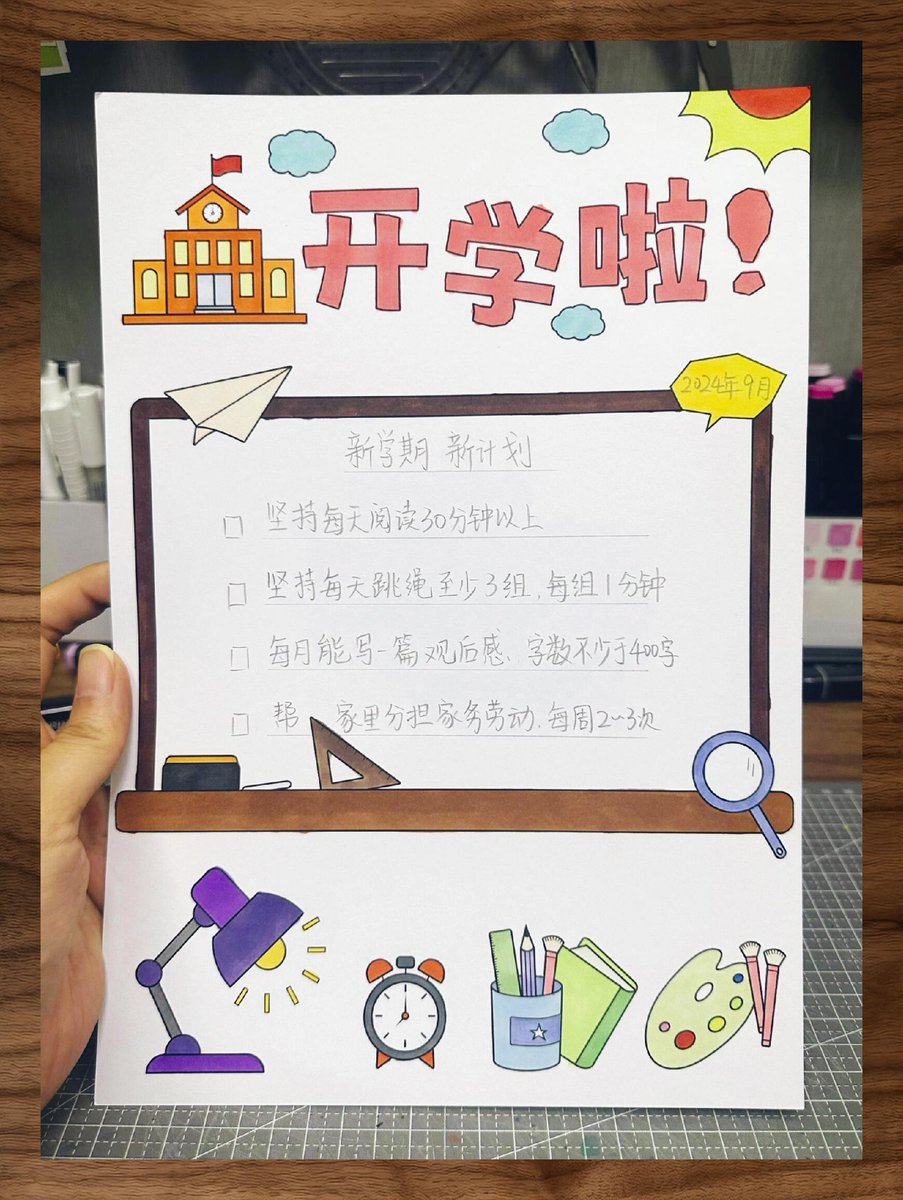 开学啦!
2024年9月
新学期 新计划
坚持每天阅读30分钟以上
坚持每天跳绳至少3组,每组1分钟
每月能写一篇观后感、字数不少于400字
帮 家里分担家务劳动.每周2~3次